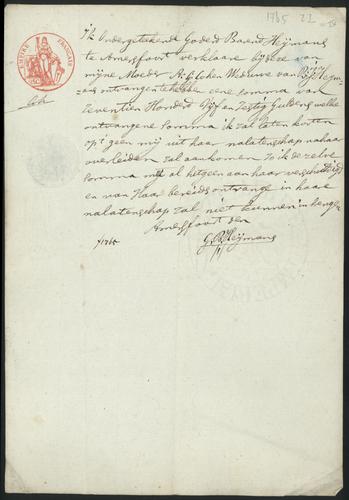 1765 22
EMPIRE FRANÇAIS
Ik Ondergetekende Goded Barend Heijmans
te Amersfoort verklaare bij deze van
mijne Moeder Wedúwe van B. Heijm=
=ans ontvangen te hebben eene somma van
Zeventien Honderd Vijf en Zestig Guldens welke
ontvangene Somma ik zal laten korten
op 't geen mij uit haar nalatenschap na haar
overleiden zal aankomen zo ik de zelve
Somma met al hetgeen aan haar verschuldigd
en van Haar bereids ontvange in haar
nalatenschap zal niet kunnen inbrenge
Amersfoort den
f 1765
G B Heijmans